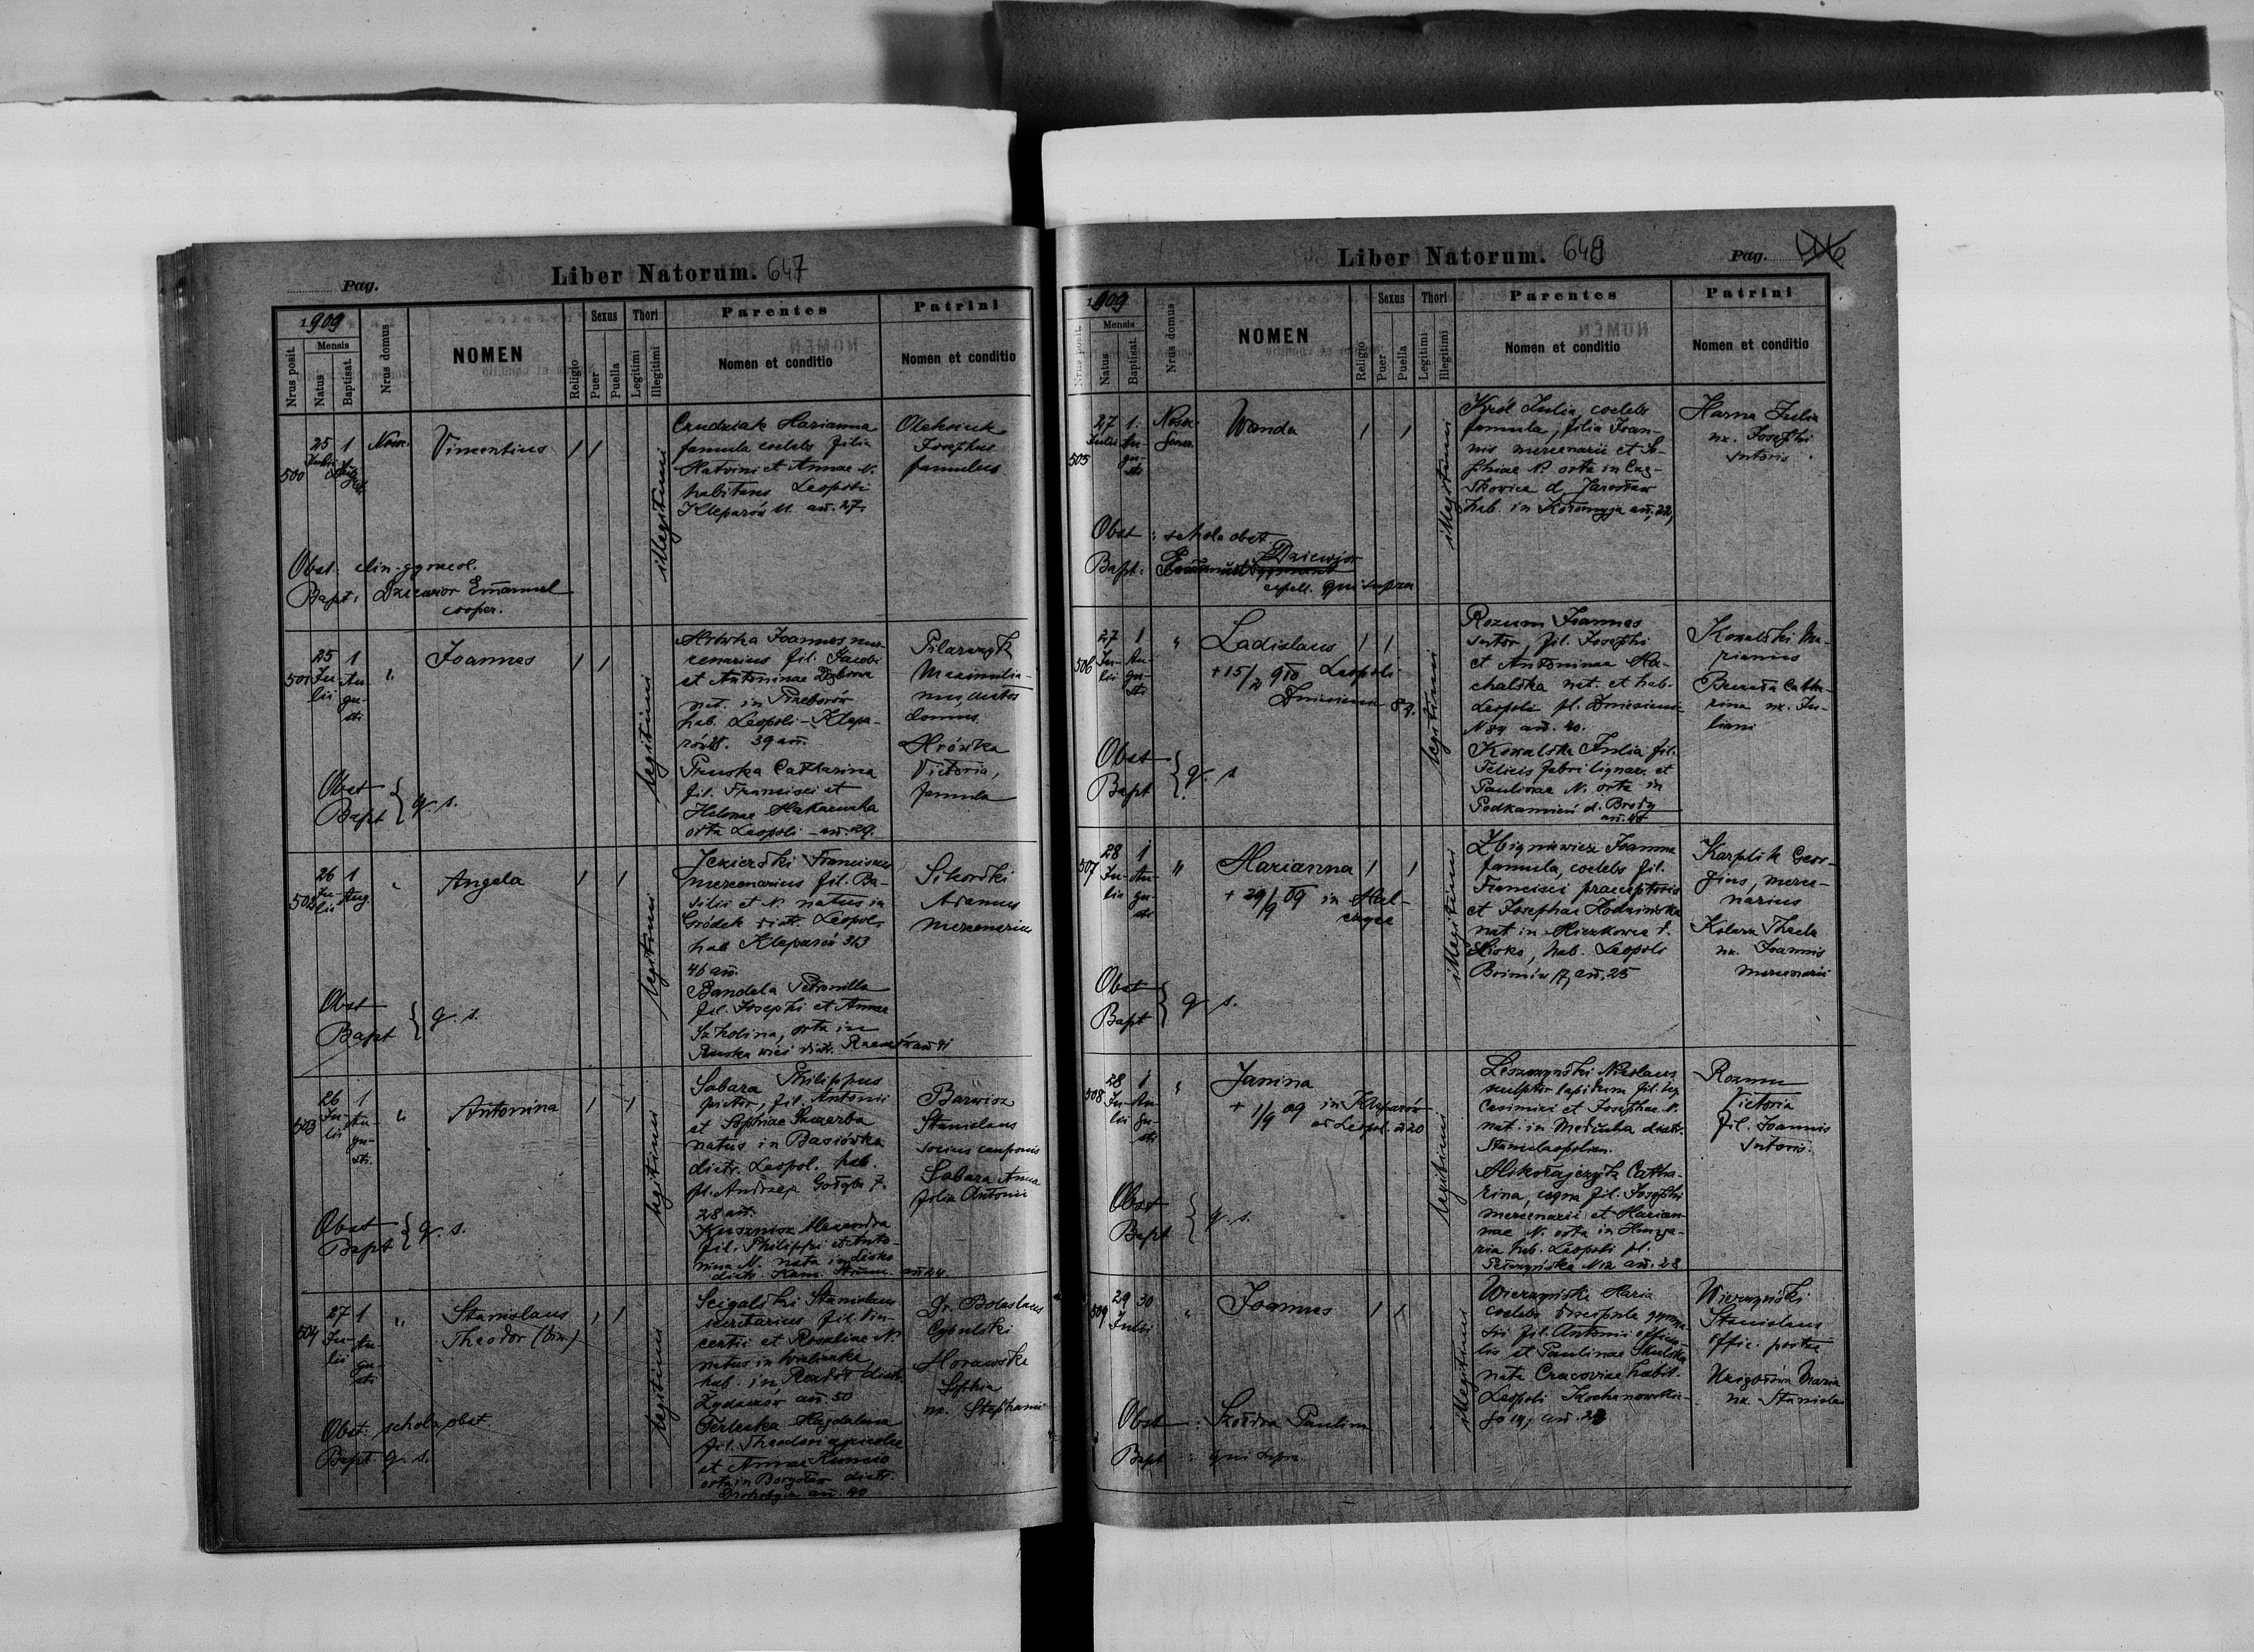 Pag.
Liber Natorum. 647
1909
Mensis
Nrus posit.
Natus
Baptisat.
Nrus domus
NOMEN
Religio
Sexus
Puer
Puella
Thori
Legitimi
Illegitimi
Parentes
Nomen et conditio
Patrini
Nomen et conditio
500
25
1
Vincentius
illegitimi
Marianna
famula coelebs filia
et Annae N.
habitans Leopoli
Kleparów 11. añ. 27.
Josephus
famulus
Obst. clin. gynaecol.
Bapt: Emanuel
cooper.
501
25
Ju-
lii
1
Au-
gu-
sti
"
Joannes
legitimi
Mrówka Joannes mer-
cenarius fil. Jacobi
et Antoninae
nat. in
hab. Leopoli - Klepa-
39 añ.
Pruska Catharina
fil. Francisci et
Helenae
orta Leopoli - añ. 29.
Pilarczyk
Maximilia-
nus, custos
domus
Mrówka
Victoria,
famula
Obst
Bapt } q. s.
502
26
Ju-
lii
1
Aug.
"
Angela
legitimi
Jezierski Franciscus
mercenarius fil. Ba-
silii et N. natus in
Gródek distr. Leopol.
hab Kleparów 313
46 añ.
Bandela Petronilla
fil. Josephi et Annae
orta in
Ruska wieś distr. añ 41
Sikorski
Adamus
mercenarius
Obst
Bapt } q. s.
503
26
Ju-
lii
1
Au-
gu-
sti.
"
Antonina
legitimi
Sabara Philippus
pictor, fil. Antonii
et Sophiae
natus in Basiówka
distr. Leopol. hab.
pl. Andrzeja Gołąba 7.
28 añ.
Alexandra
fil. Philippi et Anto-
nina N. nata in
distr. Kam. Strum. añ 24
Barwisz
Stanislaus
socius cauponis
Sabara Anna
filia Antonii
Obst
Bapt } q. s.
504
27
Ju-
lii
1
Au-
gu-
sti
"
Stanislaus
Theodor (bin.)
legitimi
Stanislaus
secretarius fil. Vin-
centii et Rosaliae N.
natus in Wieliczka,
hab. in Rozdół distr.
Żydaczów añ. 50
Terlecka Magdalena
fil. Theodori agricolae
et Annae
orta in Borysław distr.
Drohobycz añ. 40
Dr. Boleslaus
Cybulski
Morawska
Sophia
ux. Stephani
Obst: schola obst
Bapt. q. s.
Liber Natorum. 649
Pag.
1909
Mensis
Nrus posit.
Natus
Baptisat.
Nrus domus
NOMEN
Religio
Sexus
Puer
Puella
Thori
Legitimi
Illegitimi
Parentes
Nomen et conditio
Patrini
Nomen et conditio
505
27
Julii
1.
Au-
gu-
sti
Wanda
illegitimi
Król Julia, coelebs
famula, filia Joan-
nis mercenarii et So-
phiae N. orta in
d. Jarosław
hab. in Kołomyja añ. 22,
Harna Julia
ux. Josephi
sutoris.
Obst: schola obst.
Bapt.
qui supra
506
27
Ju-
lii
1
Au-
gu-
sti
"
Ladislaus
+ 15/2 910 Leopoli
89.
legitimi
Rozum Joannes
sutor, fil. Josephi
et Antoninae Ma-
chalska nat. et hab.
Leopoli pl.
N 89 añ. 40.
Kowalska Julia fil.
Felicis fabri lignar. et
Paulinae N. orta in
Podkamień d. Brody
Kowalski Ma-
rianus
Catha-
rina ux. Ju-
liani
Obst
Bapt } q. s
507
28
Ju-
lii
1
Au-
gu-
sti
"
Marianna
+ 29/9 09 in
illegitimi
Zbigniewicz Joanna
famula, coelebs fil.
Francisci praeceptoris
et Josephae
nat in d.
Lisko, hab. Leopoli
Boimów 17, añ. 25
Karplik Geor-
gius, merce-
narius
Thecla
ux. Joannis
mercenarii
Obst
Bapt } q. s.
508
28
Ju-
lii
1
Au-
gu-
sti
"
Janina
+ 1/9 09 in Kleparów
ad Leopol. 220
legitimi
Leszczyński Nicolaus
sculptor lapidum, fil.
Casimiri et Josephae N.
nat. in Meducha distr.
Stanislaopolien.
Mikołajczyk Catha-
rina, fil. Josephi
mercenarii et Marian-
nae N. orta in Hunga-
ria hab. Leopoli pl.
N 12 añ. 28
Rozum
Victoria
fil. Joannis
sutoris.
Obst
Bapt } q. s.
509
29
Julii
30
"
Joannes
illegitimi
Wierzyńska Maria
coelebs discipula gymna-
sii fil. Antonii officia-
lis et Paulinae Skulska
nata Cracoviae habit.
Leopoli Kochanowskie-
go 14,
Wierzyński
Stanislaus
offic. postae
Maria
ux. Stanislai
Obst: Paulina
Bapt: qui supra